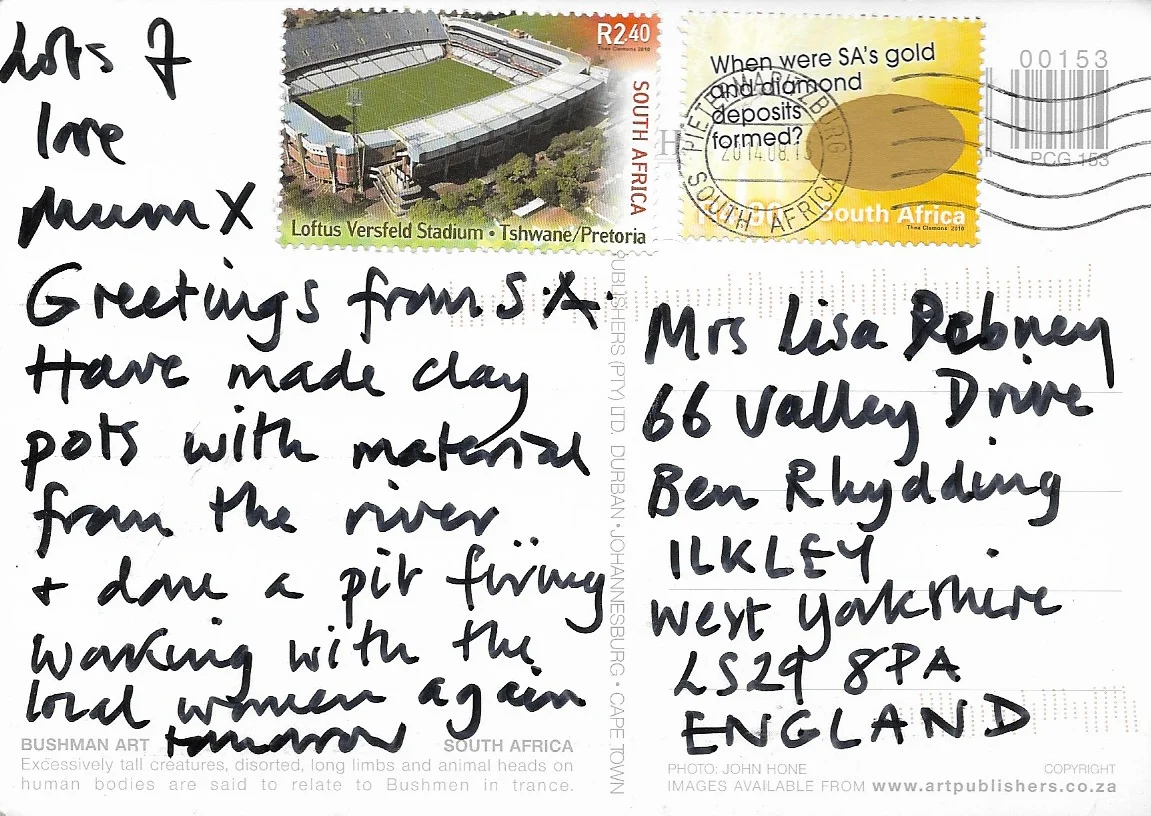 Lots of
love
Mum X
R2.40
Thea Clemons 2010
SOUTH AFRICA
Loftus Versfeld Stadium • Tshwane/Pretoria
When were SA's gold
and diamond
deposits
formed?
South Africa
Thea Clemons 2010
PIETERMARITZBURG
2014.08.13
SOUTH AFRICA
00153
PCG 153
Greetings from S.A.
Have made clay
pots with material
from the river
+ done a pit firing
working with the
local women again
tomorrow
BUSHMAN ART
SOUTH AFRICA
Excessively tall creatures, disorted, long limbs and animal heads on
human bodies are said to relate to Bushmen in trance.
PUBLISHERS (PTY) LTD. DURBAN • JOHANNESBURG • CAPE TOWN
Mrs Lisa Rebney
66 Valley Drive
Ben Rhydding
ILKLEY
West Yorkshire
LS29 8PA
ENGLAND
PHOTO: JOHN HONE
COPYRIGHT
IMAGES AVAILABLE FROM www.artpublishers.co.za